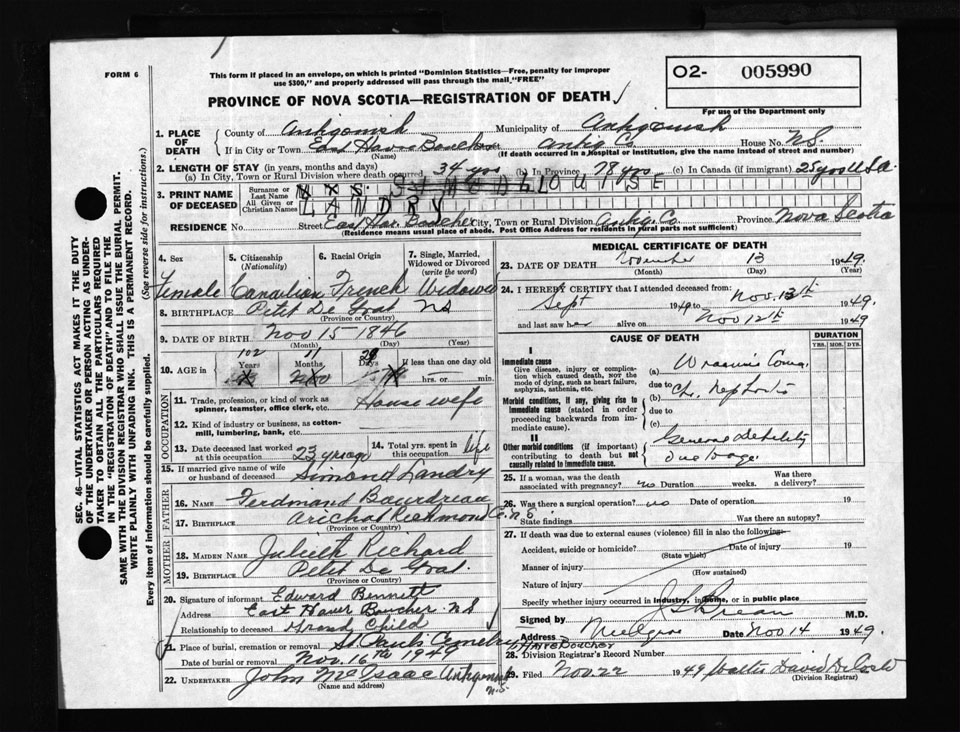 FORM 6
This form if placed in an envelope, on which is printed "Dominion Statistics—Free, penalty for improper
use $300," and properly addressed will pass through the mail "FREE"
PROVINCE OF NOVA SCOTIA—REGISTRATION OF DEATH
02- 005990
For use of the Department only
1. PLACE OF DEATH
County of Antigonish Municipality of Antigonish
If in City or Town East Havre Boucher Antig Co. House No. N.S.
(Name) (If death occurred in a hospital or institution, give the name instead of street and number)
2. LENGTH OF STAY (in years, months and days)
(a) In City, Town or Rural Division where death occurred 34 yrs (b) In Province 78 yrs (c) In Canada (if immigrant) 25 yrs U.S.a.
3. PRINT NAME OF DECEASED
Surname or Last Name MRS. LOUISE
All Given or Christian Names LANDRY
RESIDENCE No. Street East Har. Boucher City, Town or Rural Division Antig. Co. Province Nova Scotia
(Residence means usual place of abode. Post Office Address for residents in rural parts not sufficient)
4. Sex
5. Citizenship (Nationality)
6. Racial Origin
7. Single, Married, Widowed or Divorced (write the word)
Female Canadian French Widowed
8. BIRTHPLACE Petit De Grat NS
(Province or Country)
9. DATE OF BIRTH Nov 15 1846
(Month) (Day) (Year)
10. AGE in 102 Years 11 Months 29 Days If less than one day old
hrs. or min.
OCCUPATION
11. Trade, profession, or kind of work as
spinner, teamster, office clerk, etc. House wife
12. Kind of industry or business, as cotton-
mill, lumbering, bank, etc.
13. Date deceased last worked at this occupation 23 yrs ago
14. Total yrs. spent in this occupation life
15. If married give name of wife or husband of deceased Simond Landry
FATHER
16. Name Ferdinand Bourdreau
17. Birthplace Arichat Richmond Co. N S
(Province or Country)
MOTHER
18. MAIDEN NAME Julieth Richard
19. BIRTHPLACE Petit De Grat.
(Province or Country)
20. Signature of informant Edward Bennett
Address East Haver Boucher NS
Relationship to deceased Grand Child
21. Place of burial, cremation or removal St Pauls Cemetry HAVRE BOUCHER
Date of burial or removal Nov. 16th 1949
22. UNDERTAKER John McIsaac Antigonish N.S.
(Name and address)
MEDICAL CERTIFICATE OF DEATH
23. DATE OF DEATH November 13 1949.
(Month) (Day) (Year)
24. I HEREBY CERTIFY that I attended deceased from:
Sept 1949 to Nov. 13th 1949.
and last saw her alive on Nov 12th 1949
CAUSE OF DEATH
DURATION
YRS. MOS. DYS.
I
Immediate cause
Give disease, injury or complica-
tion which caused death, not the
mode of dying, such as heart failure,
asphyxia, asthenia, etc.
(a) Uraemic Coma.
due to Chr. Nephritis
Morbid conditions, if any, giving rise to
immediate cause (stated in order
proceeding backwards from im-
mediate cause).
(b)
due to
(c)
II
Other morbid conditions (if important)
contributing to death but not
causally related to immediate cause.
General debility
Due to age.
25. If a woman, was the death associated with pregnancy? no Duration weeks. Was there a delivery?
26. Was there a surgical operation? no Date of operation 19
State findings Was there an autopsy?
27. If death was due to external causes (violence) fill in also the following:
Accident, suicide or homicide? Date of injury 19
(State which)
Manner of injury
(How sustained)
Nature of injury
Specify whether injury occurred in industry, in home, or in public place
Signed by M.D.
Address Mulgrave Date Nov 14 1949.
28. Division Registrar's Record Number
29. Filed Nov. 22 1949 Walter David DeCoste
(Division Registrar)
SEC. 46—VITAL STATISTICS ACT MAKES IT THE DUTY
OF THE UNDERTAKER OR PERSON ACTING AS UNDER-
TAKER TO OBTAIN ALL THE PARTICULARS REQUIRED
IN THE "REGISTRATION OF DEATH" AND TO FILE THE
SAME WITH THE DIVISION REGISTRAR WHO SHALL ISSUE THE BURIAL PERMIT.
WRITE PLAINLY WITH UNFADING INK. THIS IS A PERMANENT RECORD.
Every item of information should be carefully supplied. (See reverse side for instructions.)